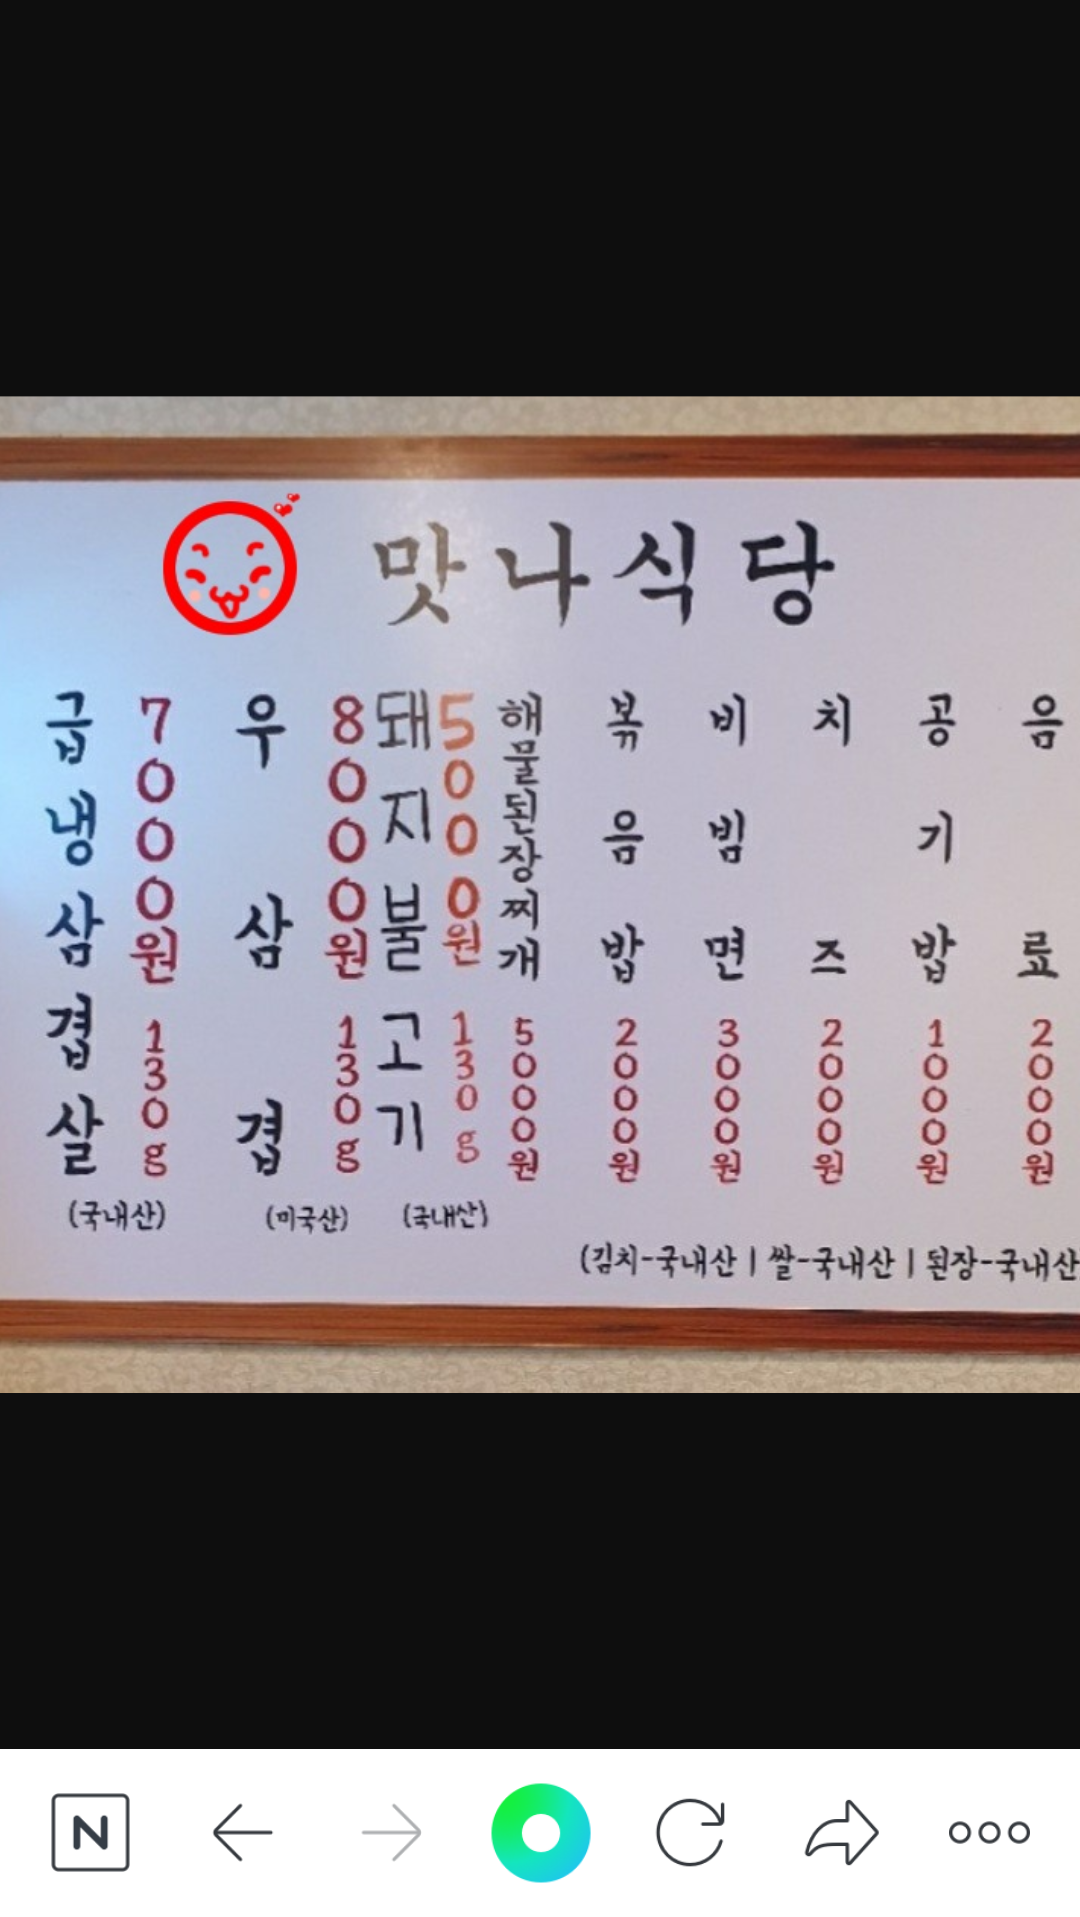 맛나식당
급냉삼겹살
7000원 130g
(국내산)
우삼겹
8000원 130g
(미국산)
돼지불고기
5000원 130g
(국내산)
해물된장찌개
5000원
볶음밥
2000원
비빔면
3000원
치즈
2000원
공기밥
1000원
음료
2000원
(김치-국내산 | 쌀-국내산 | 된장-국내산
N